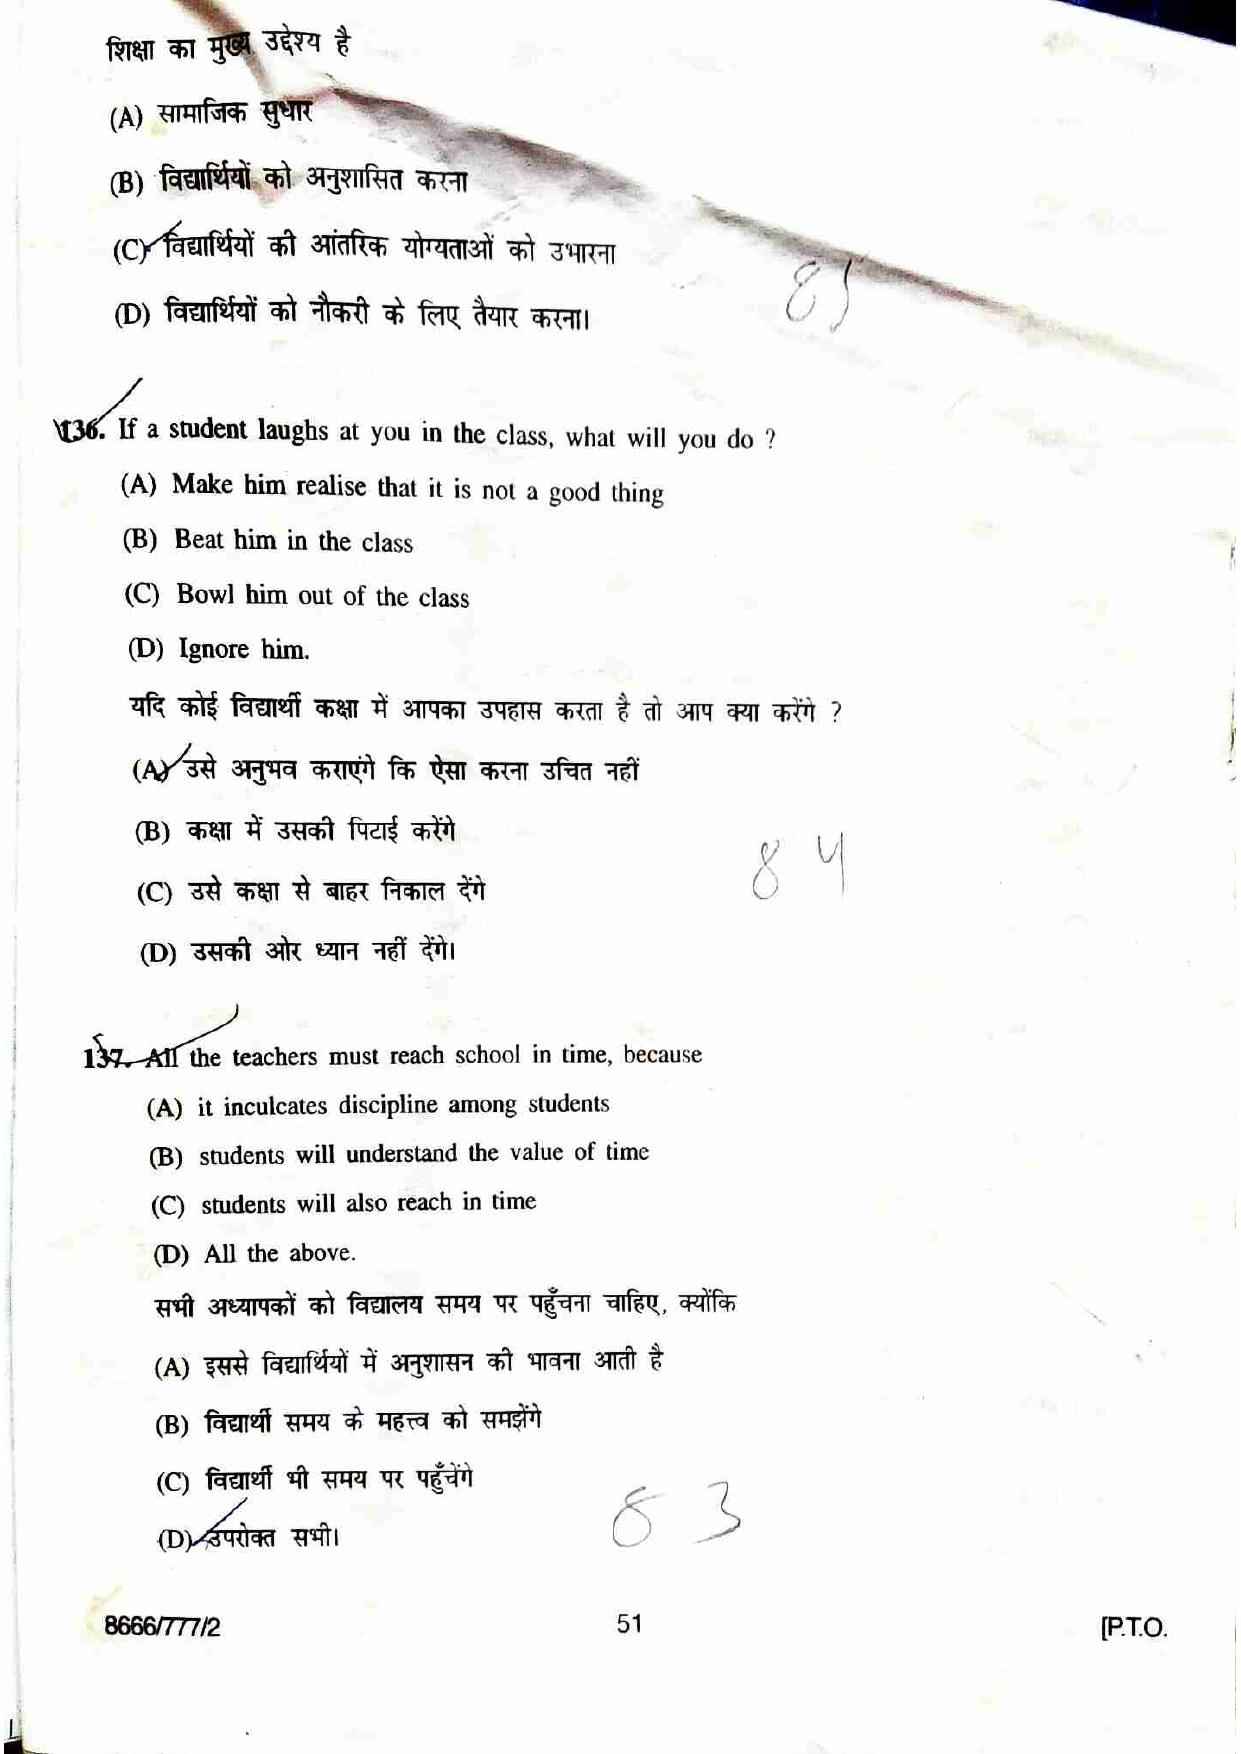 शिक्षा का मुख्य उद्देश्य है
(A) सामाजिक सुधार
(B) विद्यार्थियों को अनुशासित करना
(C) विद्यार्थियों की आंतरिक योग्यताओं को उभारना
(D) विद्यार्थियों को नौकरी के लिए तैयार करना।
85
136. If a student laughs at you in the class, what will you do ?
(A) Make him realise that it is not a good thing
(B) Beat him in the class
(C) Bowl him out of the class
(D) Ignore him.
यदि कोई विद्यार्थी कक्षा में आपका उपहास करता है तो आप क्या करेंगे ?
(A) उसे अनुभव कराएंगे कि ऐसा करना उचित नहीं
(B) कक्षा में उसकी पिटाई करेंगे
84
(C) उसे कक्षा से बाहर निकाल देंगे
(D) उसकी ओर ध्यान नहीं देंगे।
137. All the teachers must reach school in time, because
(A) it inculcates discipline among students
(B) students will understand the value of time
(C) students will also reach in time
(D) All the above.
सभी अध्यापकों को विद्यालय समय पर पहुँचना चाहिए, क्योंकि
(A) इससे विद्यार्थियों में अनुशासन की भावना आती है
(B) विद्यार्थी समय के महत्त्व को समझेंगे
(C) विद्यार्थी भी समय पर पहुँचेंगे
83
(D) उपरोक्त सभी।
8666/777/2 51 [P.T.O.